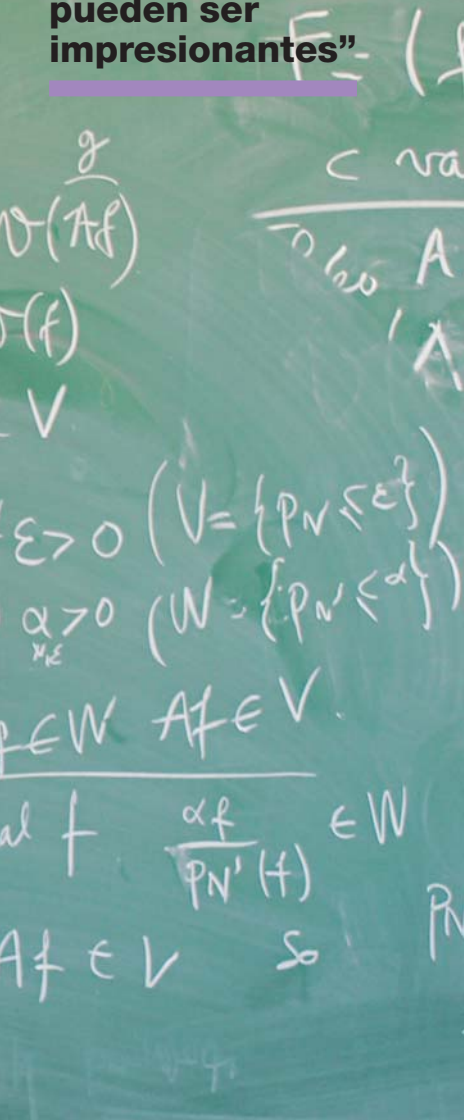 pueden ser
impresionantes”
F = (f
g
c va
v(Af)
A
v(f)
A
V
ε > 0 (V = {p_N ≤ ε})
α > 0 (W = {p_N' ≤ α})
N,ε
f ∈ W Af ∈ V.
al f αf / p_N'(f) ∈ W
p_N
Af ∈ V so